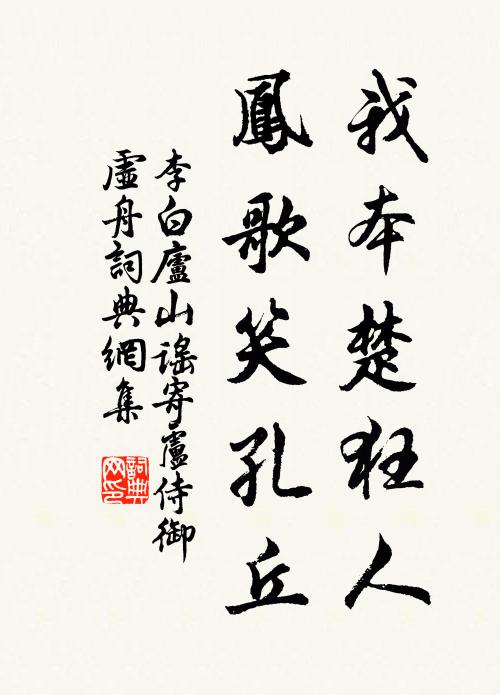 我本楚狂人
鳳歌笑孔丘
李白廬山謠寄盧侍御
虛舟詞典網集
詞典网印